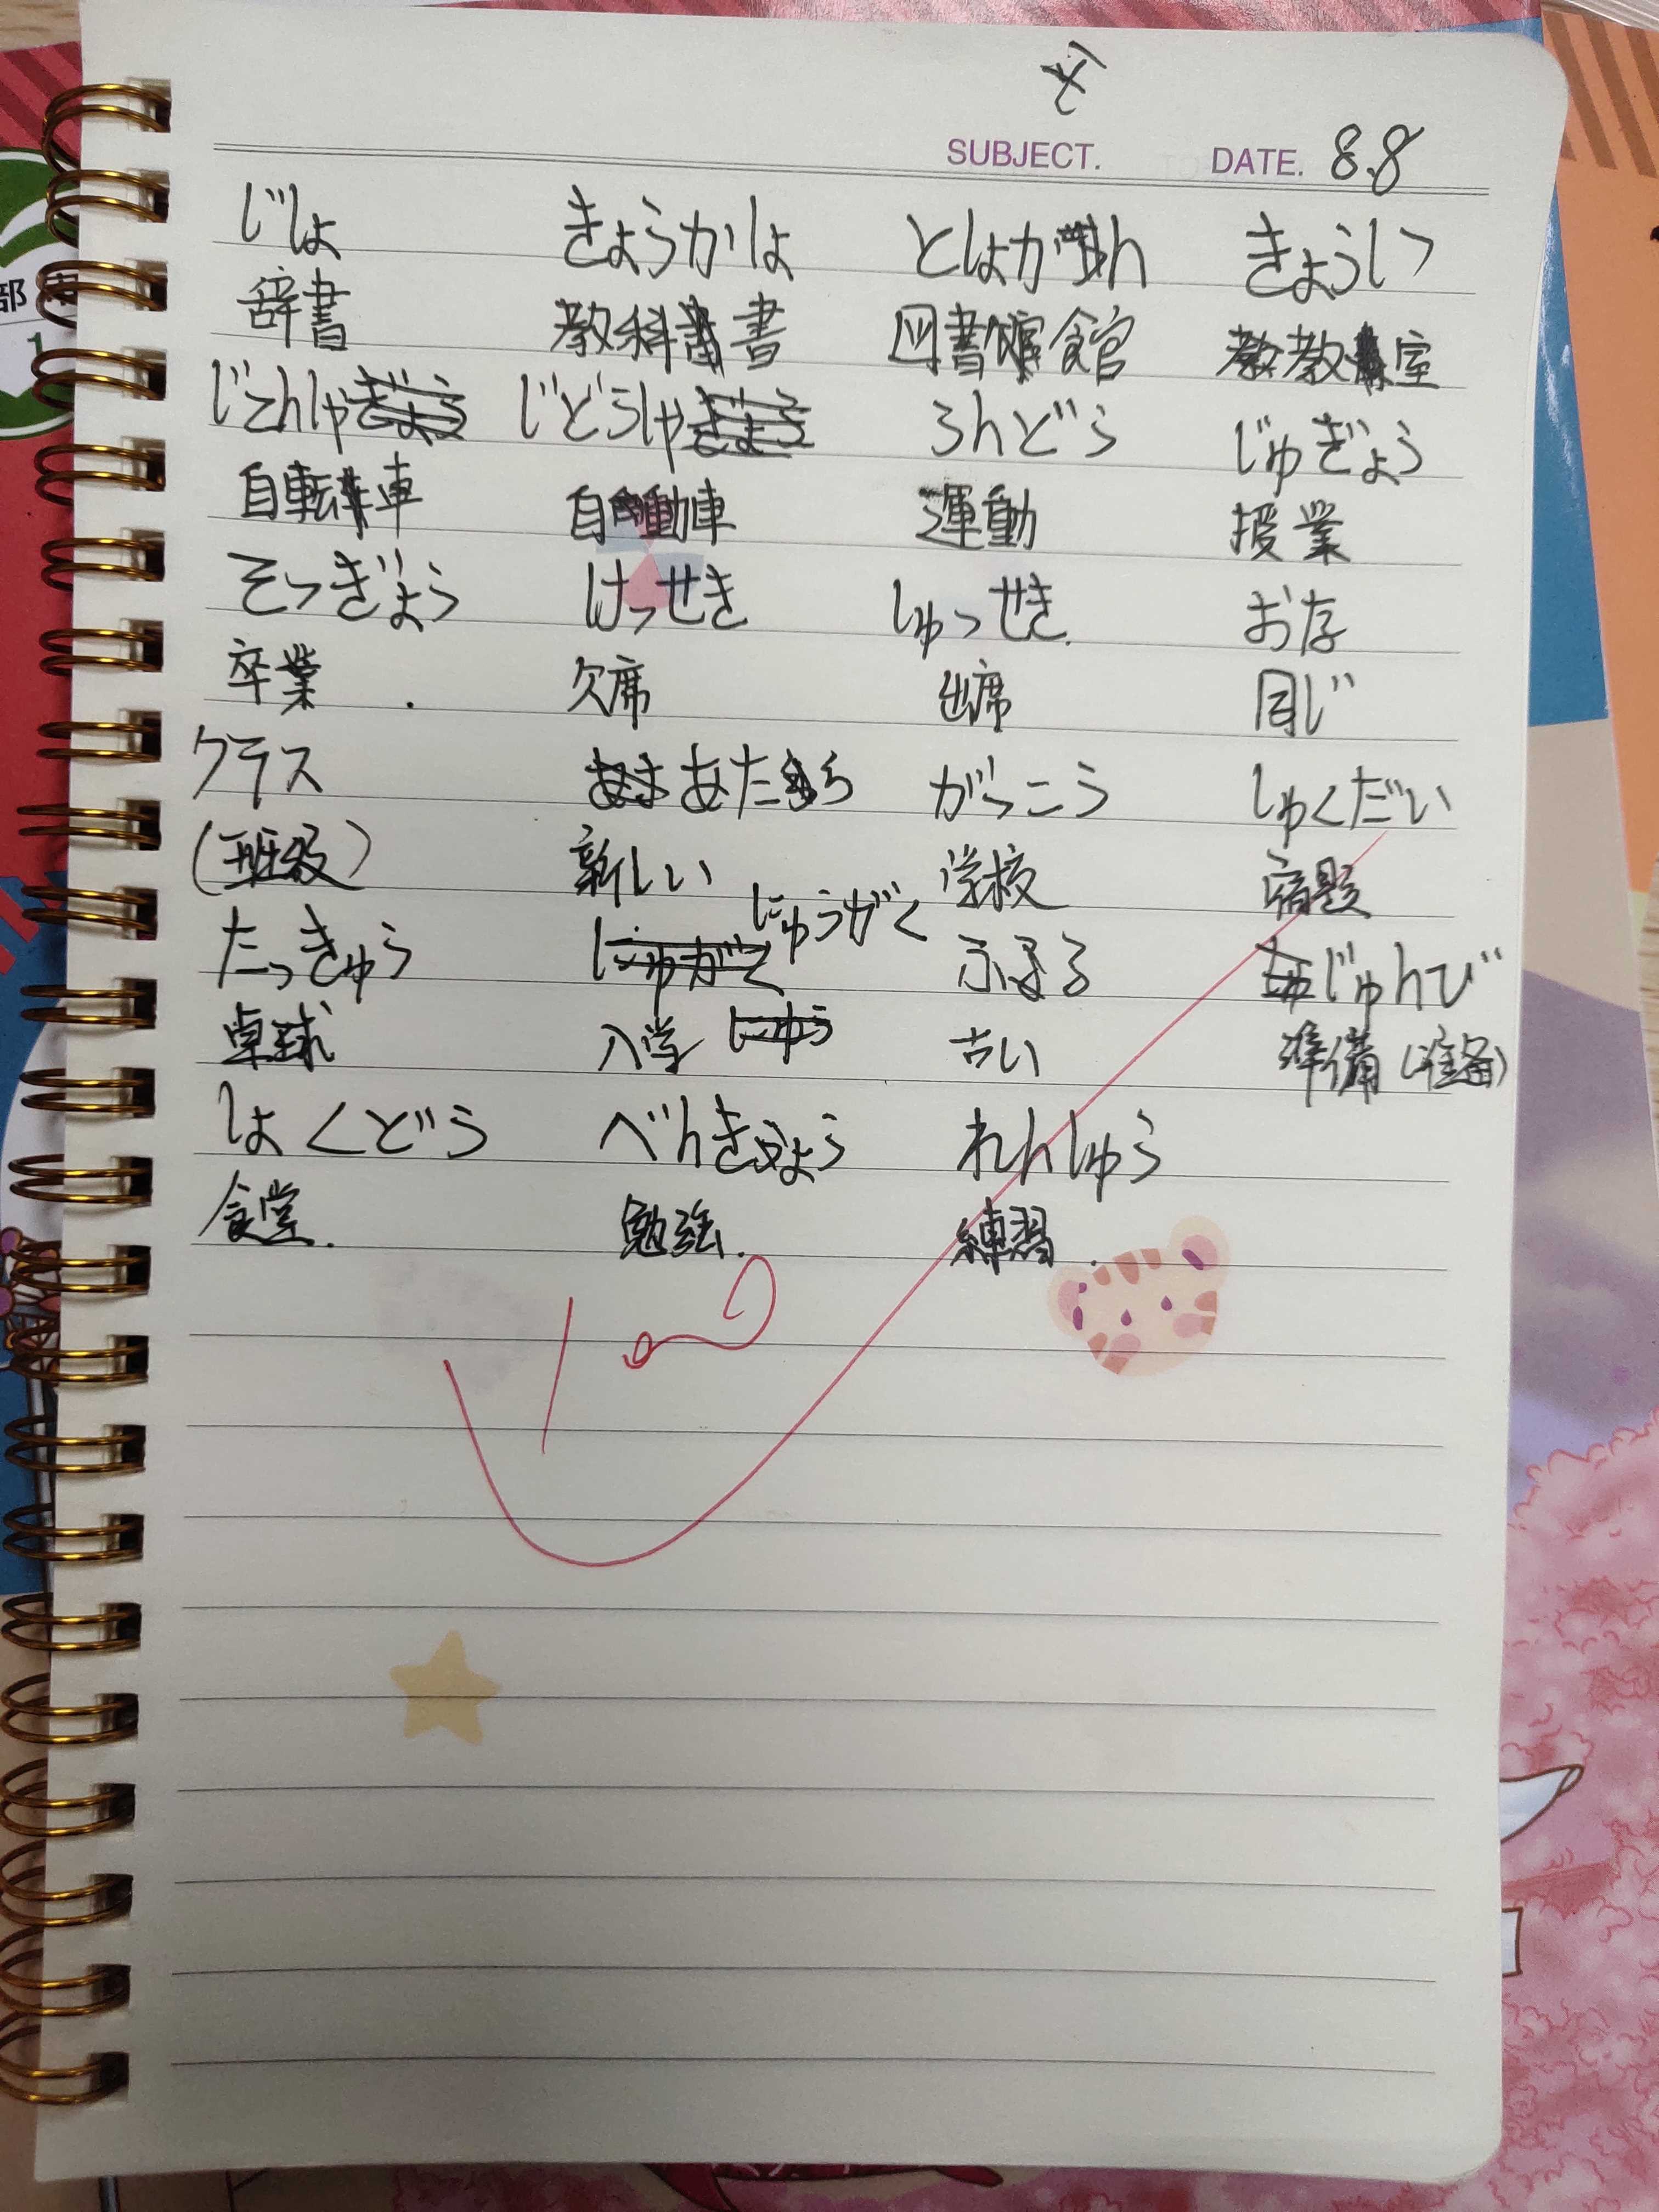 SUBJECT. DATE. 8.8
じしょ きょうかしょ としょかん きょうしつ
辞書 教科書 図書館 教教室
じてんしゃ じどうしゃ うんどう じゅぎょう
自転車 自動車 運動 授業
そつぎょう けっせき しゅっせき
卒業 欠席 出席 同じ
クラス あたら がっこう しゅくだい
(班级) 新しい 学校 宿題
たっきゅう にゅうがく ふる じゅんび
卓球 入学 古い 準備 (准备)
しょくどう べんきょう れんしゅう
食堂. 勉強. 練習.
100
部
1